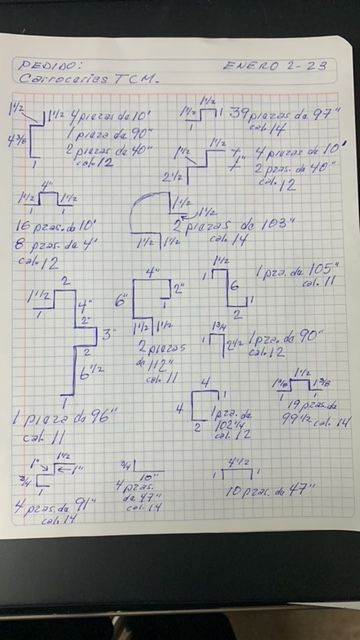 PEDIDO: ENERO 2-23
Carrocerias TCM.
1½ 1½ 4 piezas de 10'
4 3/8 1 pieza de 90"
2 piezas de 40"
1 cal. 12
1½
1½ 1 39 piezas de 97"
1 cal. 14
1½ 4 piezas de 10'
1½ 2 pzas. de 40"
2½ cal. 12
4"
1½ 1½
1 1
16 pzas de 10'
8 pzas. de 4"
cal. 12
1½
2 piezas 103"
1½ 1½ cal. 14
2
1½ 4"
1 2"
3"
2
6½
1
1 pieza de 96"
cal. 11
4"
6" 2"
1½ 1½
2 piezas
de 112"
cal. 11
1½ 1 pza. de 105"
1 6 cal. 11
1
2
1 3/4
2½ 1 pza. de 90"
1 cal. 12
4
4 1
2 1 pza. de
102 1/4
cal. 12
1½
1 3/8
1 1
19 pzas. de
99½ cal. 14
1½
1" 1"
3/4
1
4 pzas. de 91"
cal. 14
3/4
10"
4 pzas.
de 47"
cal. 14
4½
1 1
10 pzas. de 47"